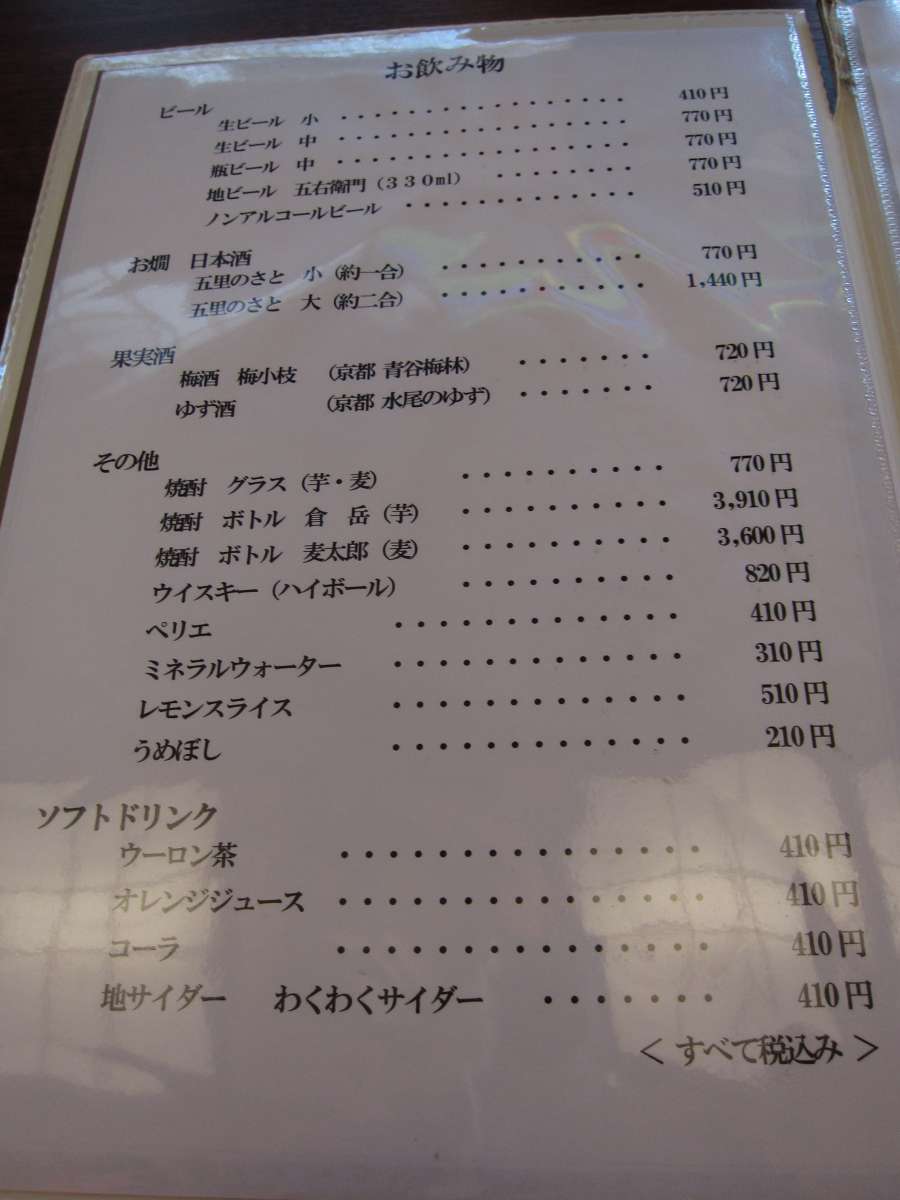 お飲み物
ビール
生ビール 小 ・・・・・・・・・・・・・・・・・ 410円
生ビール 中 ・・・・・・・・・・・・・・・・・ 770円
瓶ビール 中 ・・・・・・・・・・・・・・・・・ 770円
地ビール 五右衛門（330ml） ・・・・・・・・ 770円
ノンアルコールビール ・・・・・・・・・・・・・ 510円
お燗 日本酒
五里のさと 小（約一合） ・・・・・・・・・・・ 770円
五里のさと 大（約二合） ・・・・・・・・・・・ 1,440円
果実酒
梅酒 梅小枝 （京都 青谷梅林） ・・・・・・・ 720円
ゆず酒 （京都 水尾のゆず） ・・・・・・・ 720円
その他
焼酎 グラス（芋・麦） ・・・・・・・・・・ 770円
焼酎 ボトル 倉 岳（芋） ・・・・・・・・・・ 3,910円
焼酎 ボトル 麦太郎（麦） ・・・・・・・・・・ 3,600円
ウイスキー（ハイボール） ・・・・・・・・・・ 820円
ペリエ ・・・・・・・・・・・・・ 410円
ミネラルウォーター ・・・・・・・・・・・・・ 310円
レモンスライス ・・・・・・・・・・・・・ 510円
うめぼし ・・・・・・・・・・・・・ 210円
ソフトドリンク
ウーロン茶 ・・・・・・・・・・・・・・・・ 410円
オレンジジュース ・・・・・・・・・・・・・・・・ 410円
コーラ ・・・・・・・・・・・・・・・・ 410円
地サイダー わくわくサイダー ・・・・・・・ 410円
＜ すべて税込み ＞